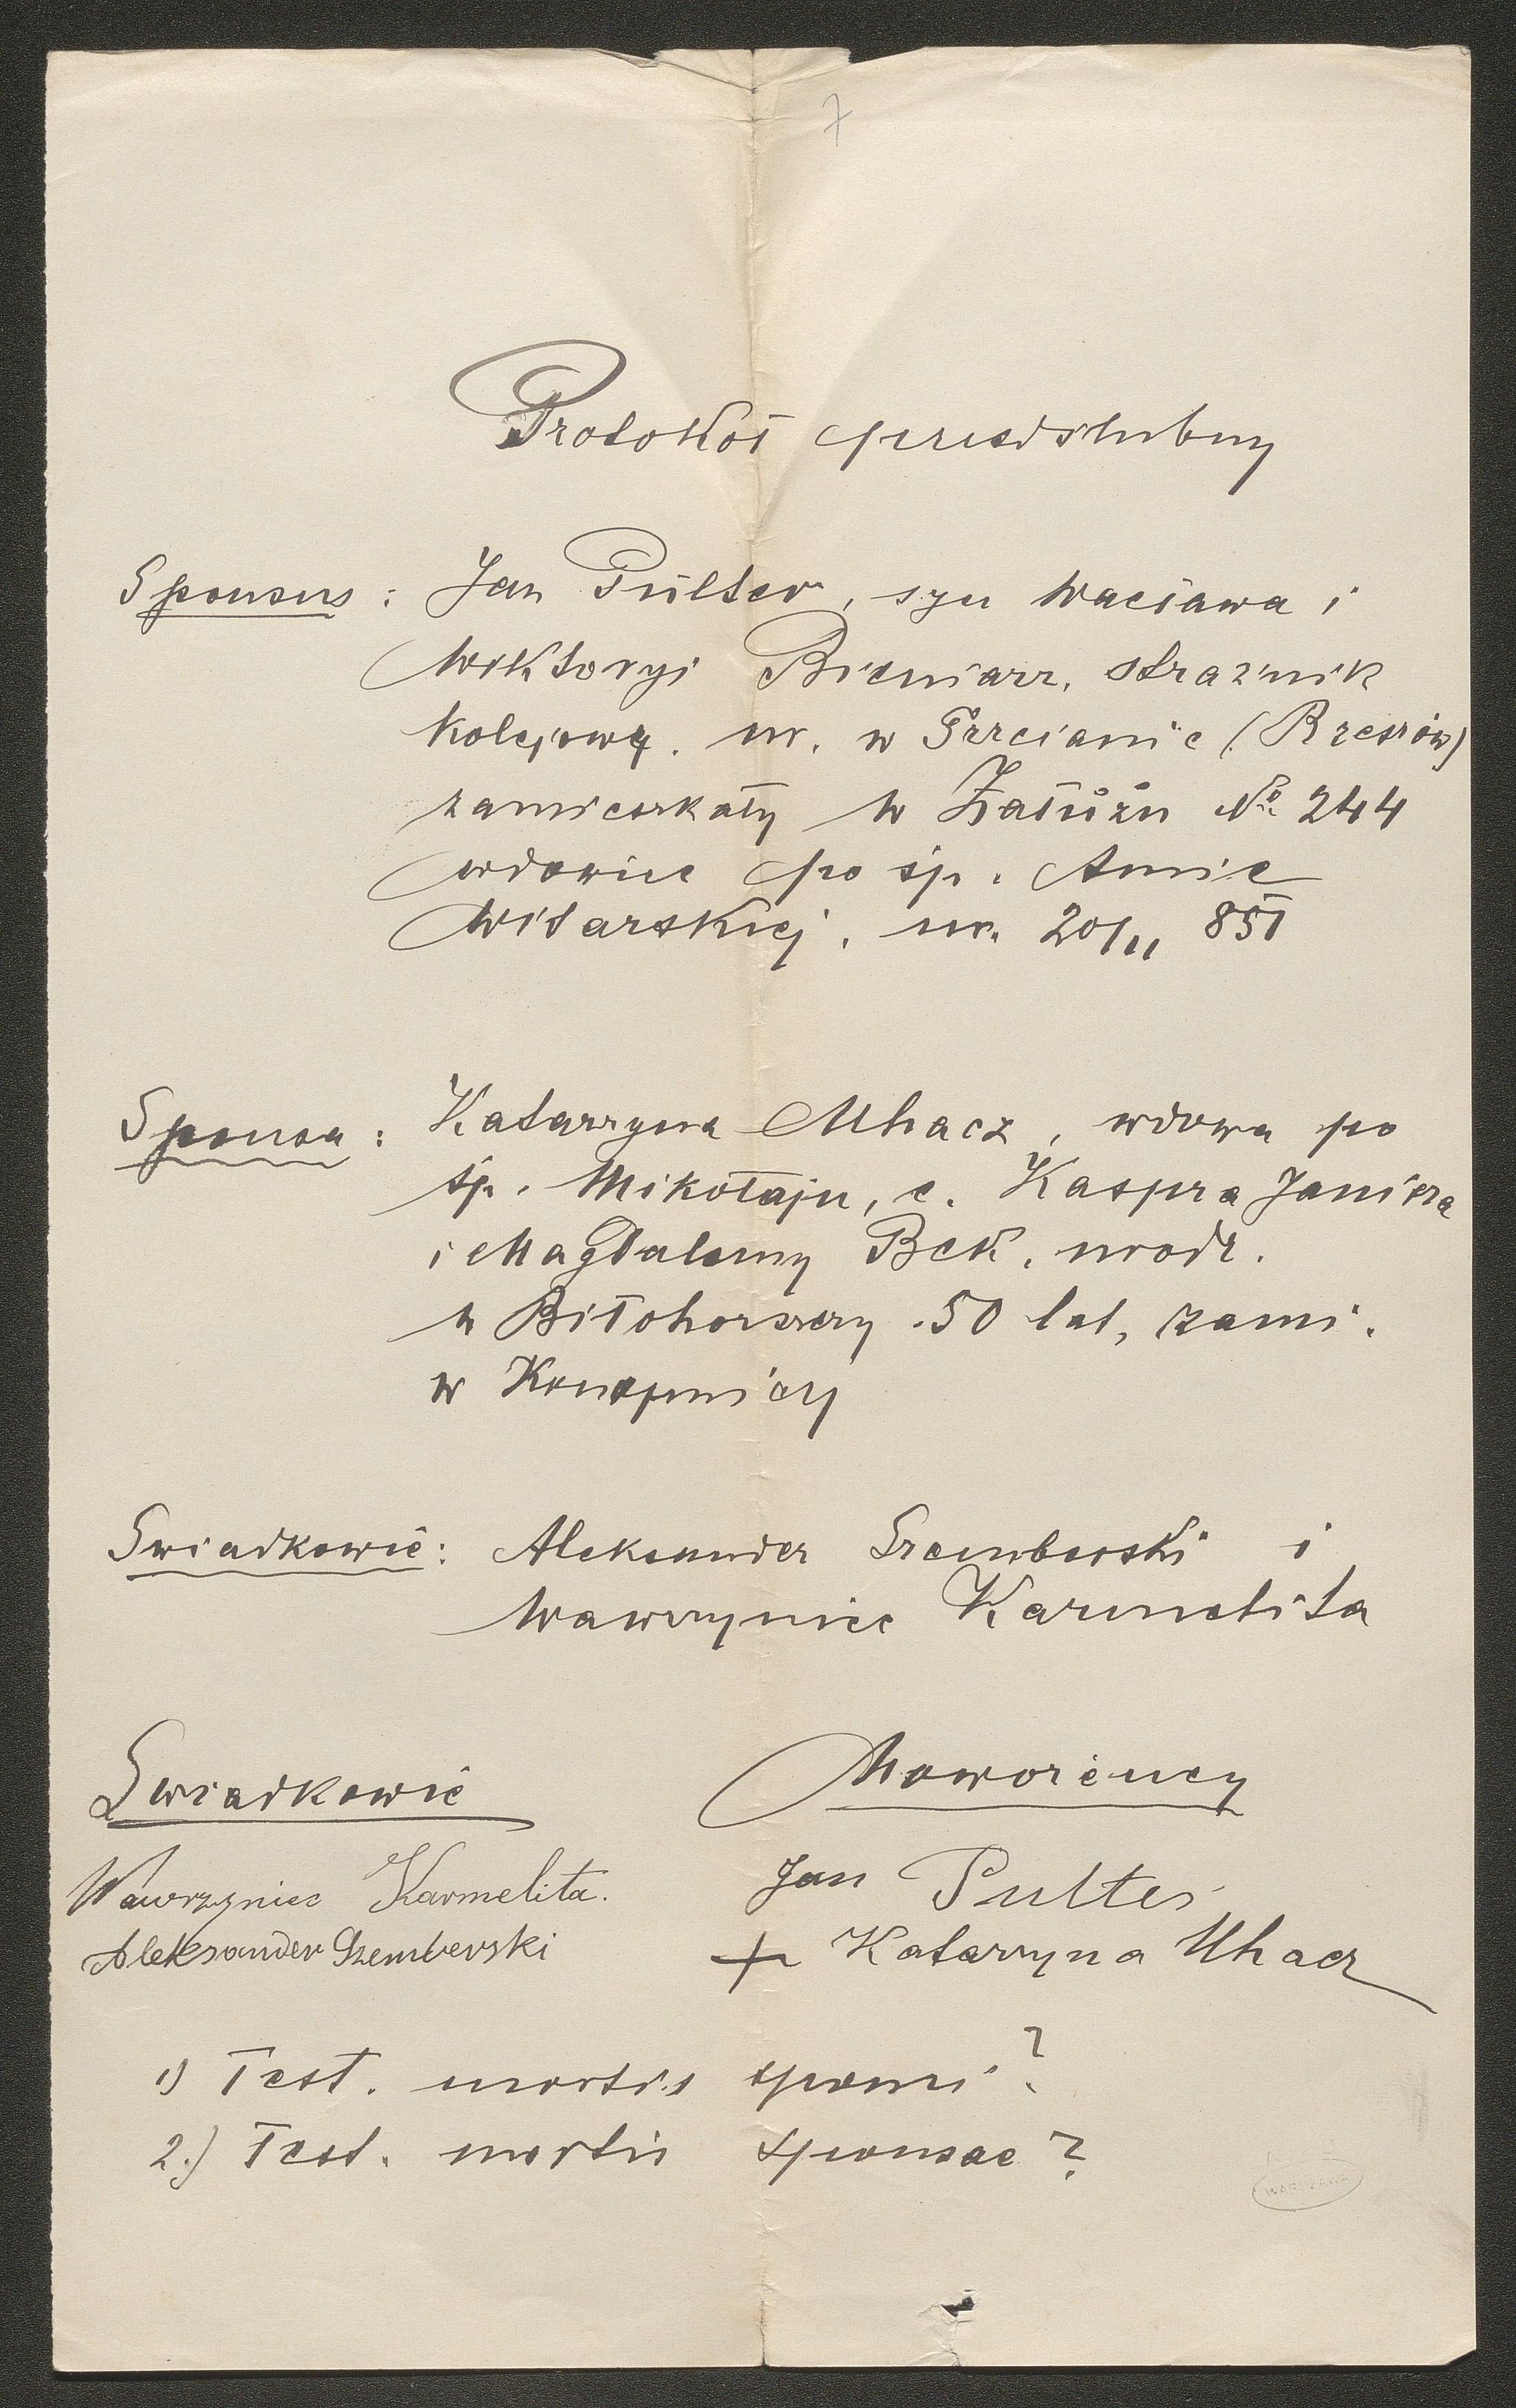 7
Protokół przedślubny
Sponsus : Jan Pülter, syn Wacława i
Wiktoryi Bieniarz, strażnik
kolejowy. ur. w Trzcianie (Rzeszów)
zamieszkały w Załużu № 244
wdowiec po śp. Annie
Witarskiej, ur. 20/11 851
Sponsa : Katarzyna Uhacz, wdowa po
śp. Mikołaju, c. Kaspra Janisza
i Magdaleny Bek, urodz.
w Biłohorszczy . 50 lat, zami.
w Konopnicy
Swiadkowie : Aleksander Szemberski i
Wawrzyniec Karmelita
Swiadkowie Noworzeńcy
Wawrzyniec Karmelita. Jan Pulter
Aleksander Szemberski + Katarzyna Uhacz
1) Test. mortis sponsi ?
2.) Test. mortis sponsae ?